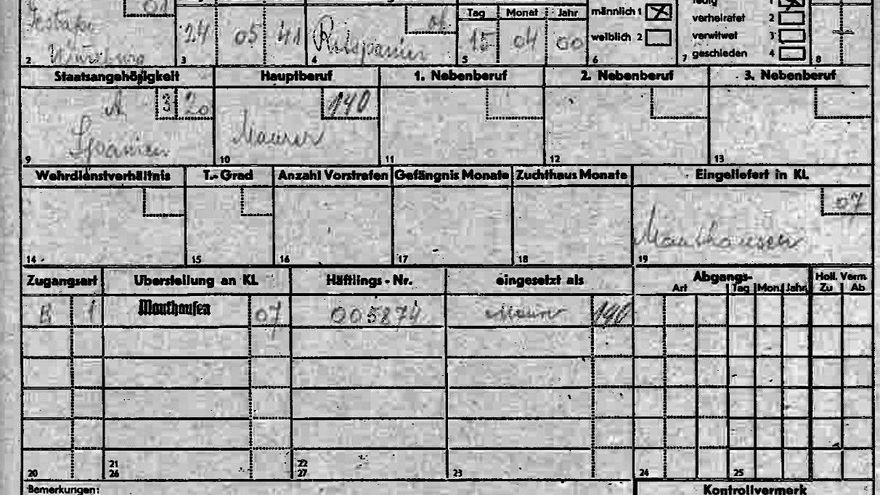 01
männlich 1 ☒
ledig 1 ☒
Tag Monat Jahr
verheiratet 2 ☐
24 05 41 Rotspanier 06 15 04 00
weiblich 2 ☐
verwitwet 3 ☐
Würzburg
geschieden 4 ☐
2 3 4 5 6 7 8
Staatsangehörigkeit Hauptberuf 1. Nebenberuf 2. Nebenberuf 3. Nebenberuf
3 20 140
Spanien Maurer
9 10 11 12 13
Wehrdienstverhältnis T.-Grad Anzahl Vorstrafen Gefängnis Monate Zuchthaus Monate Eingeliefert in KL
07
Mauthausen
14 15 16 17 18 19
Zugangsart Überstellung an KL Häftlings-Nr. eingesetzt als Abgangs- Holl. Verm.
Art Tag Mon. Jahr Zu Ab
1 Mauthausen 07 005874 Maurer 140
20 21 22 23 24 25
26 27
Bemerkungen: Kontrollvermerk